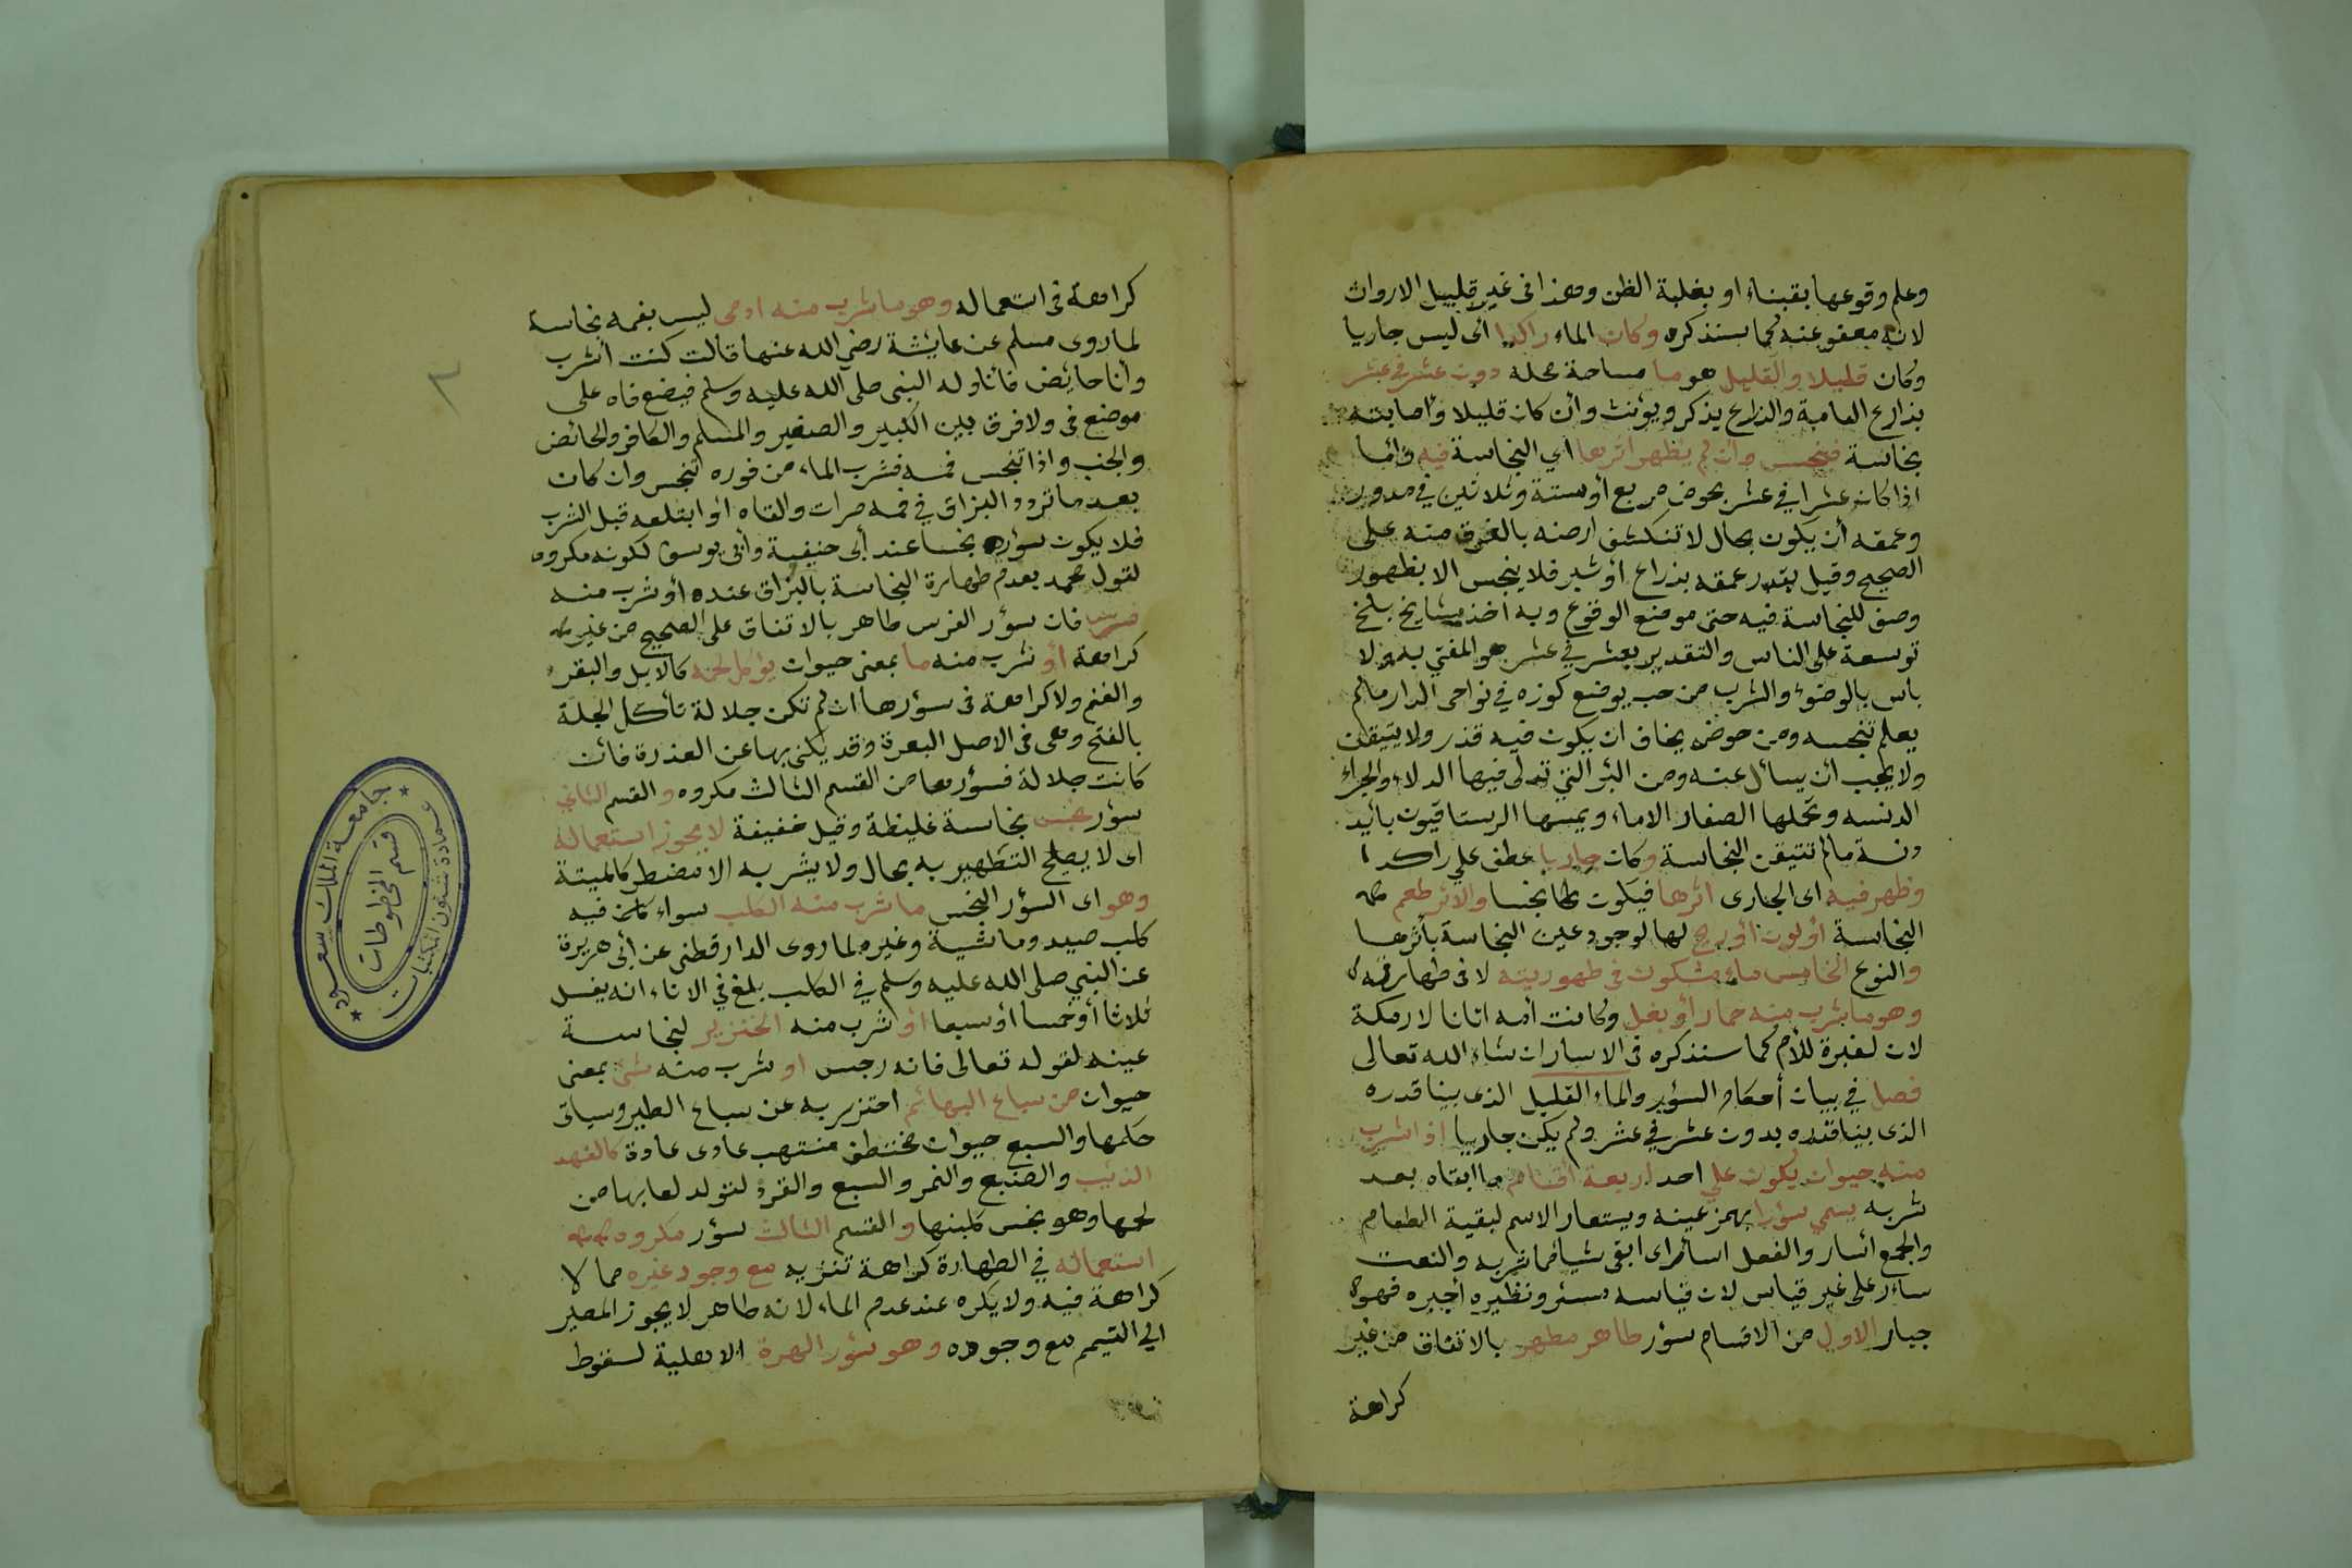 وعلم وقوعها يقينا او بغلبة الظن وهذا في غير قليل الارواث
لانه معفو عنه كما سنذكره وكان الماء راكدا اى ليس جاريا
وكان قليلا والقليل هو ما مساحة محله دون عشر في عشر
بذارع العامة والذراع يذكر ويؤنث وأن كان قليلا وأصابته
نجاسة فينجس وان لم يظهر اثرها اي النجاسة فيه وأما
اذا كان عشرا في عشر بحوض مربع أو ستة وثلاثين في مدور
وعمقه أن يكون بحال لا تنكشف ارضه بالغرف منه على
الصحيح وقيل يقدر عمقه بذراع أو شبر فلا ينجس الا بظهور
وصف للنجاسة فيه حتى موضع الوقوع وبه اخذ مشايخ بلخ
توسعة على الناس والتقدير بعشر في عشر هو المفتي به ولا
بأس بالوضوء والشرب من حب يوضع كوزه في نواحى الدار مالم
يعلم تنجسه ومن حوض يخاف ان يكون فيه قذر ولا يتيقن
ولا يجب أن يسأل عنه ومن البئر التي تدلى فيها الدلاء والجرار
الدنسه وتحملها الصغار الاماء ويمسها الرستاقيون بأيد
دنسة مالم تتيقن النجاسة وكان جاريا عطف علي راكدا
وظهر فيه اى الجارى اثرها فيكون نجسا والاثر طعم
النجاسة أو لون أو ريح لها لوجود عين النجاسة بأثرها
والنوع الخامس ماء مشكوك في طهوريته لا فى طهارته
وهو ما شرب منه حمار أو بغل وكانت أمه اتانا لا رمكة
لان لعبرة للأم كما سنذكره فى الاسار ان شاء الله تعالى
فصل في بيان أحكام السؤر والماء القليل الذى بينا قدره
الذى بينا قدره بدون عشر في عشر ولم يكن جاريا اذا شرب
منه حيوان يكون علي احد اربعة أقسام ما ابقاه بعد
شربه يسمي سؤرا بهمز عينه ويستعار الاسم لبقية الطعام
والجمع اسار والفعل اسأر اى ابقى شيأ مما شربه والنعت
سأر على غير قياس لان قياسه مسئر ونظيره أجبره فهو
جبار الاول من الاقسام سؤر طاهر مطهر بالاتفاق من غير
كراهة
كراهة فى استعماله وهو ما شرب منه ادمى ليس بفمه نجاسة
لما روى مسلم عن عايشة رضي الله عنها قالت كنت أشرب
وأنا حايض فأناوله النبى صلى الله عليه وسلم فيضع فاه على
موضع في ولا فرق بين الكبير والصغير والمسلم والكافر والحائض
والجنب واذا تنجس فمه فشرب الماء من فوره تنجس وان كان
بعد ما تردد البزاق في فمه مرات والقاه أو ابتلعه قبل الشرب
فلا يكون سؤره نجسا عند أبى حنيفة وأبى يوسف لكونه مكروه
لقول محمد بعدم طهارة النجاسة بالبزاق عنده أو شرب منه
فرس فان سؤر الفرس طاهر بالاتفاق على الصحيح من غير
كراهة أو شرب منه ما بمعنى حيوان يؤكل لحمه كالابل والبقر
والغنم ولا كراهة فى سؤرها ان لم تكن جلالة تأكل الجلة
بالفتح وهى فى الاصل البعرة وقد يكنى بها عن العذرة فان
كانت جلالة فسؤرها من القسم الثالث مكروه والقسم الثاني
سؤر نجس نجاسة غليظة وقيل خفيفة لا يجوز استعماله
اى لا يصلح التطهير به بحال ولا يشربه الا مضطر كالميتة
وهو اى السؤر النجس ما شرب منه الكلب سواء كان فيه
كلب صيد وماشية وغيره لما روى الدارقطنى عن أبى هريرة
عن النبي صلى الله عليه وسلم في الكلب يلغ في الاناء انه يغسل
ثلاثا أو خمسا أو سبعا أو شرب منه الخنزير لنجاسة
عينه لقوله تعالى فانه رجس او شرب منه شئ بمعنى
حيوان من سباع البهائم احتزر به عن سباع الطير وسياتى
حكمها والسبع حيوان مختطف منتهب عادى عادة كالفهد
الذيب والضبع والنمر والسبع والقرد لتولد لعابها من
لحمها وهو نجس كلبنها والقسم الثالث سؤر مكروه
استعماله في الطهارة كراهة تنزيه مع وجود غيره مما لا
كراهة فيه ولا يكره عند عدم الماء لانه طاهر لا يجوز المصير
الي التيمم مع وجوده وهو سؤر الهرة الاهلية لسقوط
جامعة الملك سعود
عمادة شئون المكتبات
قسم المخطوطات